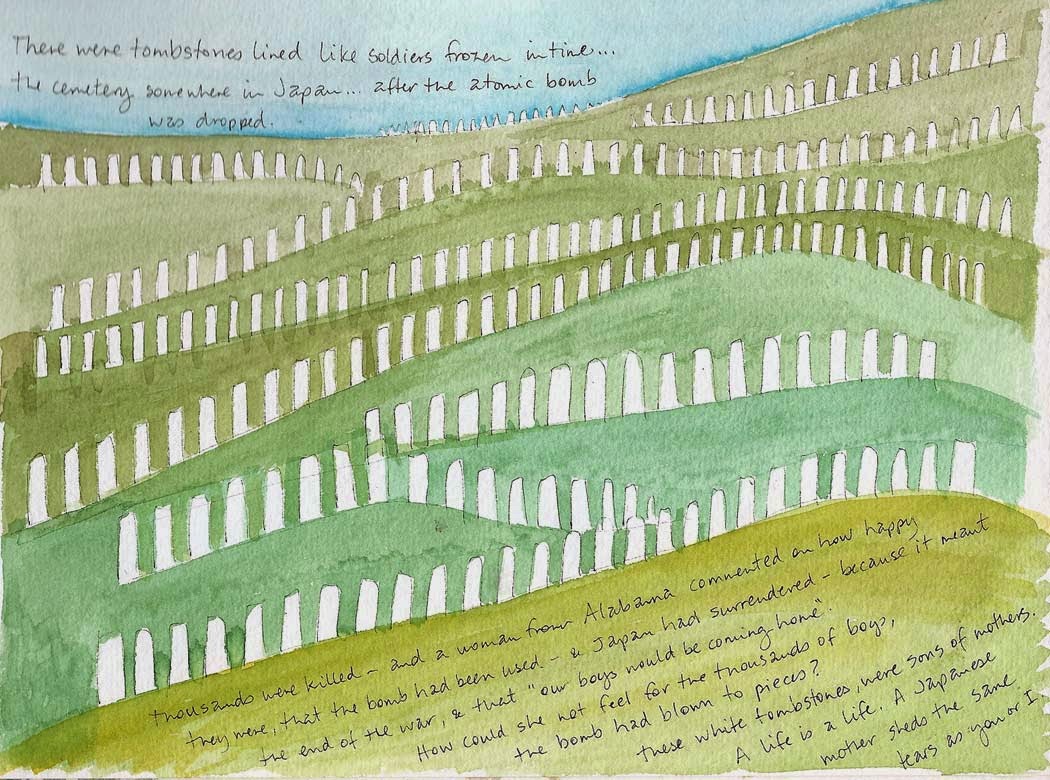 There were tombstones lined like soldiers frozen in time...
the cemetery somewhere in Japan... after the atomic bomb
was dropped.
thousands were killed - and a woman from Alabama commented on how happy
they were, that the bomb had been used - & Japan had surrendered - because it meant
the end of the war, & that "our boys would be coming home".
How could she not feel for the thousands of boys,
the bomb had blown to pieces?
these white tombstones, were sons of mothers.
A life is a life. A Japanese
mother sheds the same
tears as you or I